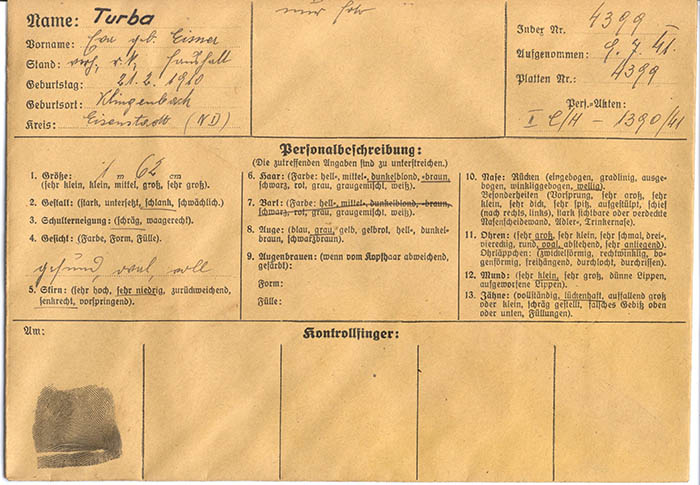 Name: Turba
Vorname: Eva geb. Eisner
Stand: verh. r.k. Haushalt
Geburtstag: 21.2.1910
Geburtsort: Klingenbach
Kreis: Eisenstadt (ND)
nur
Index Nr. 4399
Aufgenommen: 9.7.41.
Platten Nr.: 4399
Pers.-Akten:
II C/H – 1390/41
Personalbeschreibung:
(Die zutreffenden Angaben sind zu unterstreichen.)
1. Größe: 1 m 62 cm
(sehr klein, klein, mittel, groß, sehr groß).
2. Gestalt: (stark, untersetzt, schlank, schwächlich).
3. Schulterneigung: (schräg, waagerecht).
4. Gesicht: (Farbe, Form, Fülle).
gesund, oval, voll
5. Stirn: (sehr hoch, sehr niedrig, zurückweichend,
senkrecht, vorspringend).
6. Haar: (Farbe: hell-, mittel-, dunkelblond, -braun,
schwarz, rot, grau, graugemischt, weiß).
7. Bart: (Farbe: hell-, mittel-, dunkelblond, -braun,
schwarz, rot, grau, graugemischt, weiß).
8. Auge: (blau, grau, gelb, gelbrot, hell-, dunkel-
braun, schwarzbraun).
9. Augenbrauen: (wenn vom Kopfhaar abweichend,
gefärbt):
Form:
Fülle:
10. Nase: Rücken (eingebogen, gradlinig, ausge-
bogen, winkliggebogen, wellig).
Besonderheiten (Vorsprung, sehr groß, sehr
klein, sehr dick, sehr spitz, aufgestülpt, schief
(nach rechts, links), stark sichtbare oder verdeckte
Nasenscheidewand, Adler-, Trinkernase).
11. Ohren: (sehr groß, sehr klein, sehr schmal, drei-,
viereckig, rund, oval, abstehend, sehr anliegend)
Ohrläppchen: (zwickelförmig, rechtwinklig, bo-
genförmig, freihängend, durchlocht, durchrissen).
12. Mund: (sehr klein, sehr groß, dünne Lippen,
aufgeworfene Lippen).
13. Zähne: (vollständig, lückenhaft, auffallend groß
oder klein, schräg gestellt, falsches Gebiß oben
oder unten, Füllungen).
Am:
Kontrollfinger: